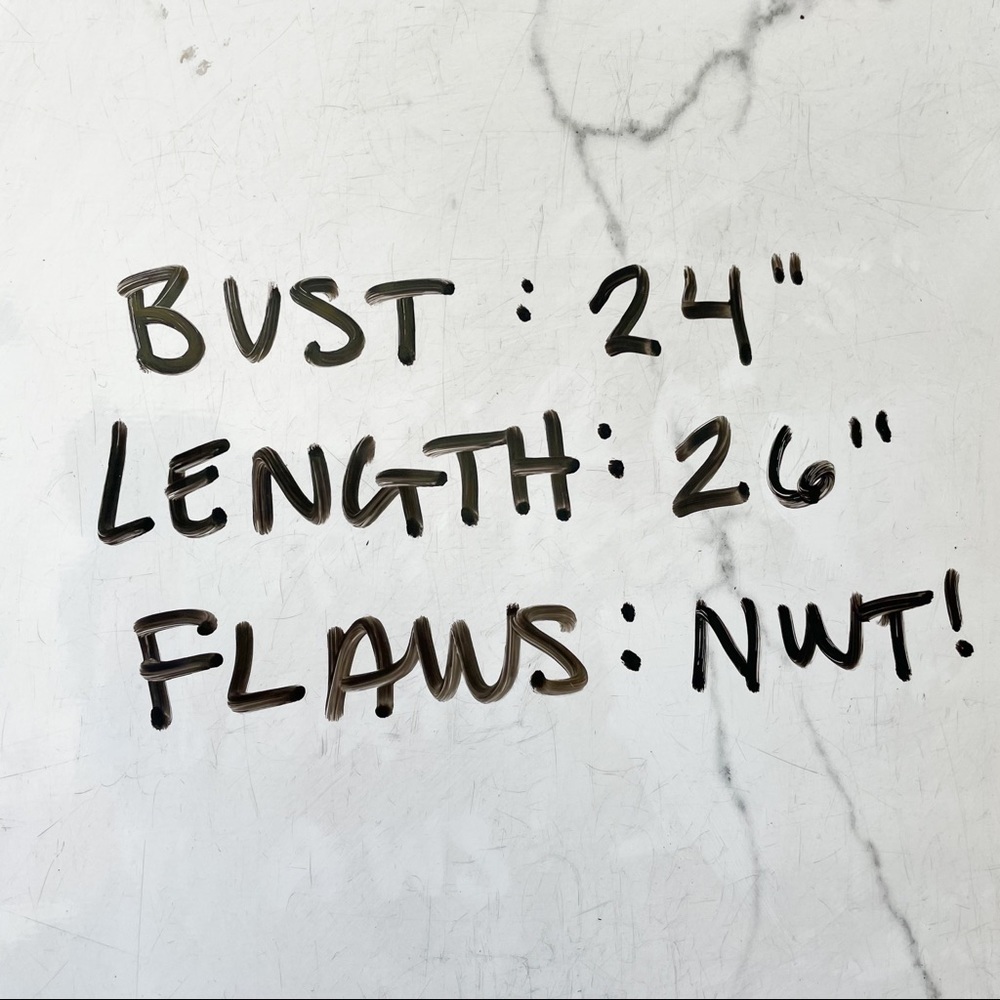 BUST : 24"
LENGTH: 26"
FLAWS: NWT!